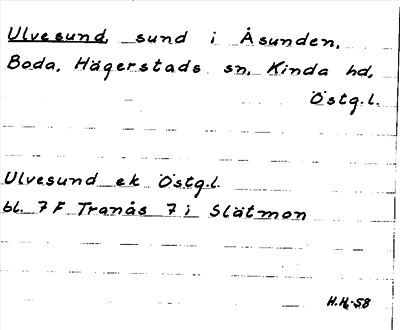 Ulvesund, sund i Åsunden,
Boda, Hägerstads sn, Kinda hd,
Östg.l.
Ulvesund ek Östg.l.
bl. 7 F Tranås 7 i Slätmon
H.H.-58